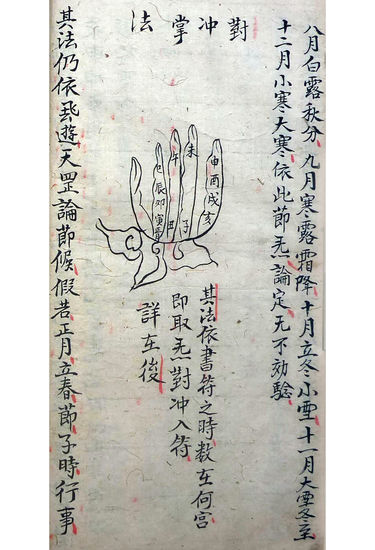 八月白露秋分九月寒露霜降十月立冬小雪十一月大雪冬至
十二月小寒大寒依此節炁論定无不効驗
對冲掌法
申酉戌亥
未子
午丑
巳辰卯寅
其法依書符之時数在何宮
即取炁對冲入符
詳在後
其法仍依飛遊天罡論節候假若正月立春節子時行事